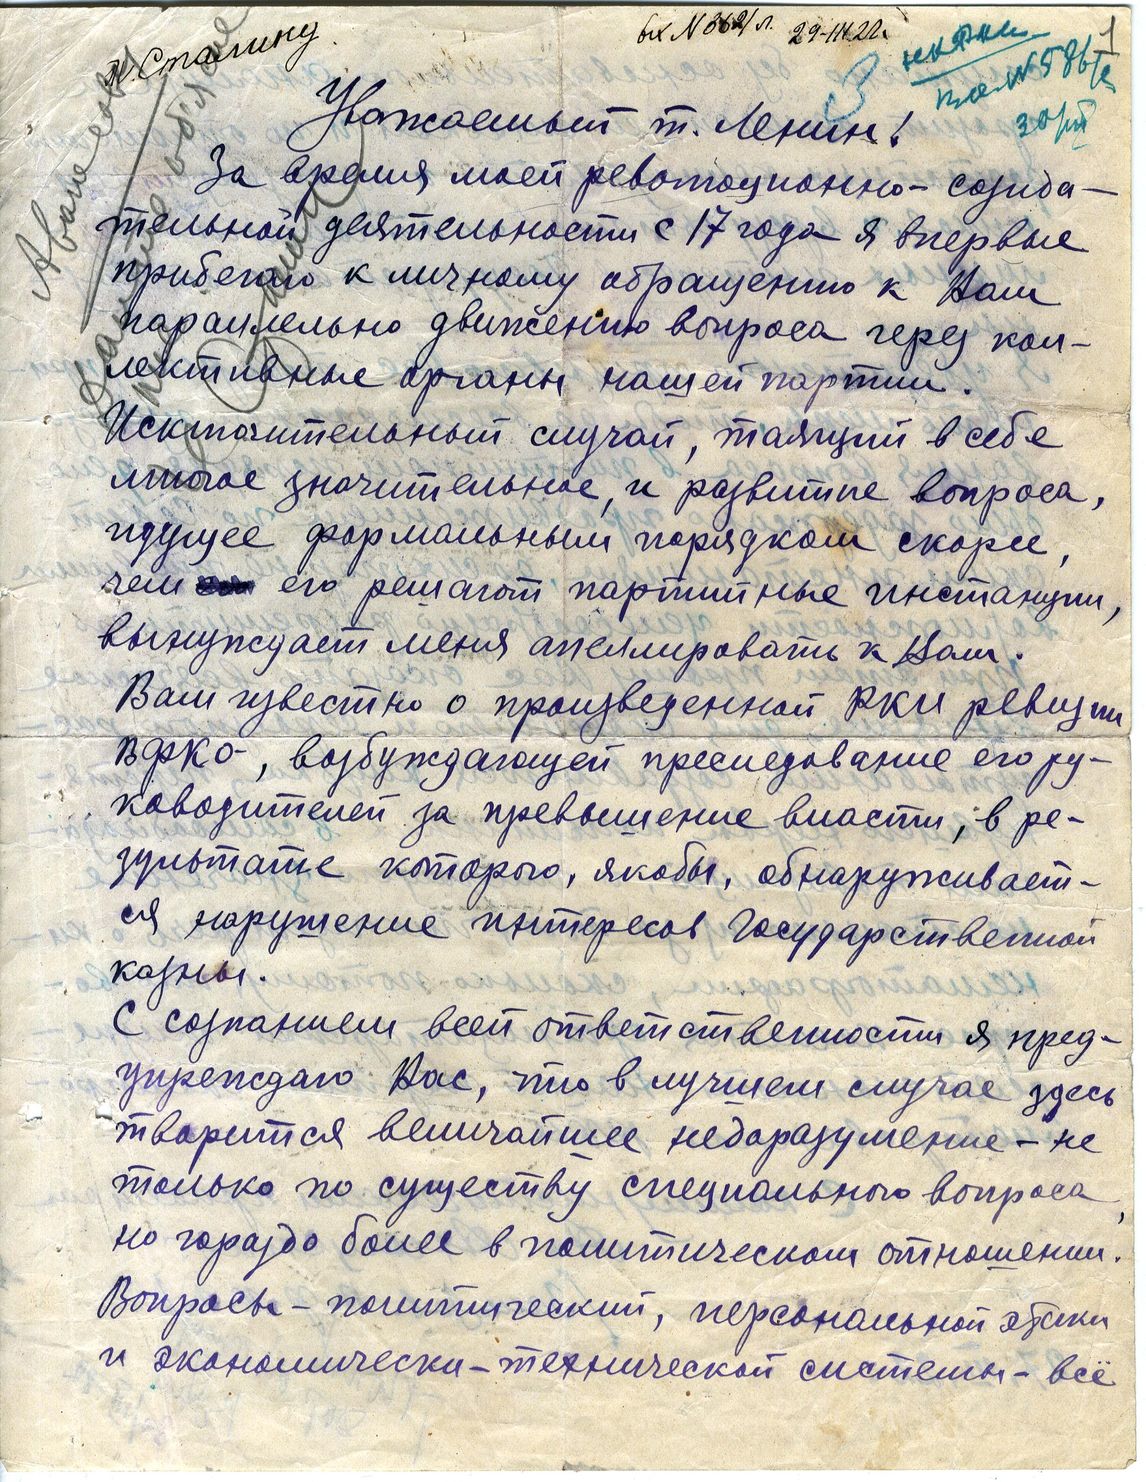 т. Сталину.
вх N 3621 л. 29-III-22 г.
1
3
Уважаемый т. Ленин!
За время моей революционно-созида-
тельной деятельности с 17 года я впервые
прибегаю к личному обращению к Вам
параллельно движению вопроса через кол-
лективные органы нашей партии.
Исключительный случай, таящий в себе
многое значительное, и развитие вопроса,
идущее формальным порядком скорее,
чем его решают партийные инстанции,
вынуждает меня апеллировать к Вам.
Вам известно о произведенной РКИ ревизии
ВФКО, возбуждающей преследование его ру-
ководителей за превышение власти, в ре-
зультате которого, якобы, обнаруживает-
ся нарушение интересов Государственной
казны.
С сознанием всей ответственности я пред-
упреждаю Вас, что в лучшем случае здесь
творится величайшее недоразумение – не
только по существу специального вопроса,
но гораздо более в политическом отношении.
Вопросы – политический, персональной этики
и экономически-технической системы – всё